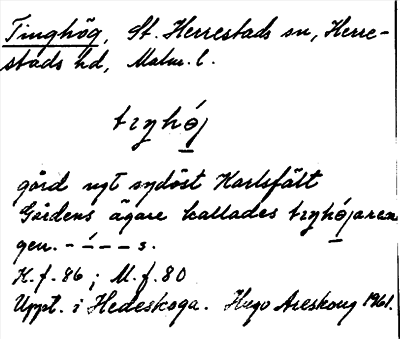 Tinghög, St. Herrestads sn, Herre-
stads hd, Malm. l.
tɪŋhǿj
gård nyt sydöst Karlsfält
Gårdens ägare kallades tɪŋhǿjaren
gen. - ́ - - - s.
K. f. 86 ; M. f. 80
Uppt. i Hedeskoga. Hugo Areskoug 1961.